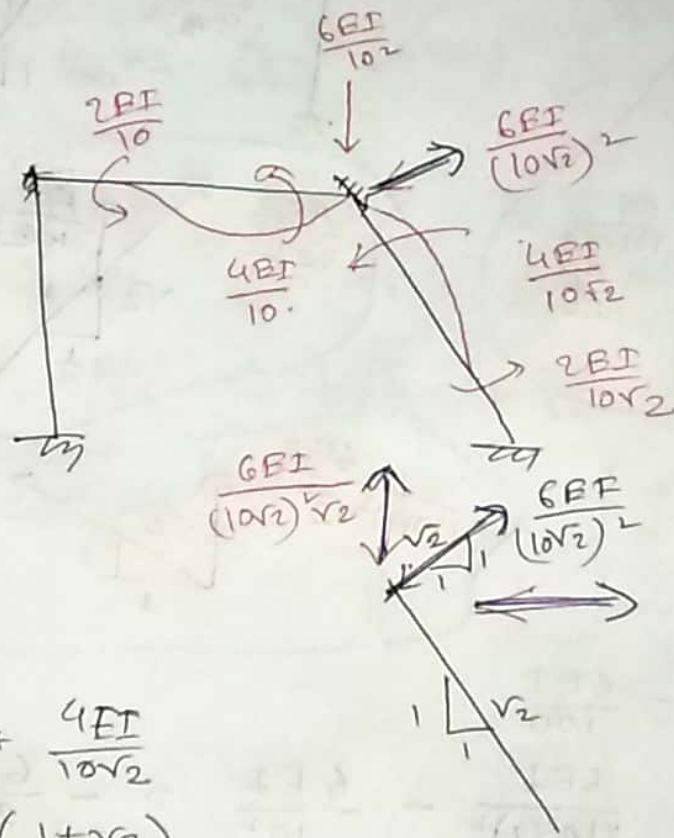 6EI/10²
2EI/10
6EI/(10√2)²
4EI/10.
4EI/10√2
2EI/10√2
6EI/(10√2)²√2
6EI/(10√2)²
√2
1
1
1
√2
1
4EI/10√2